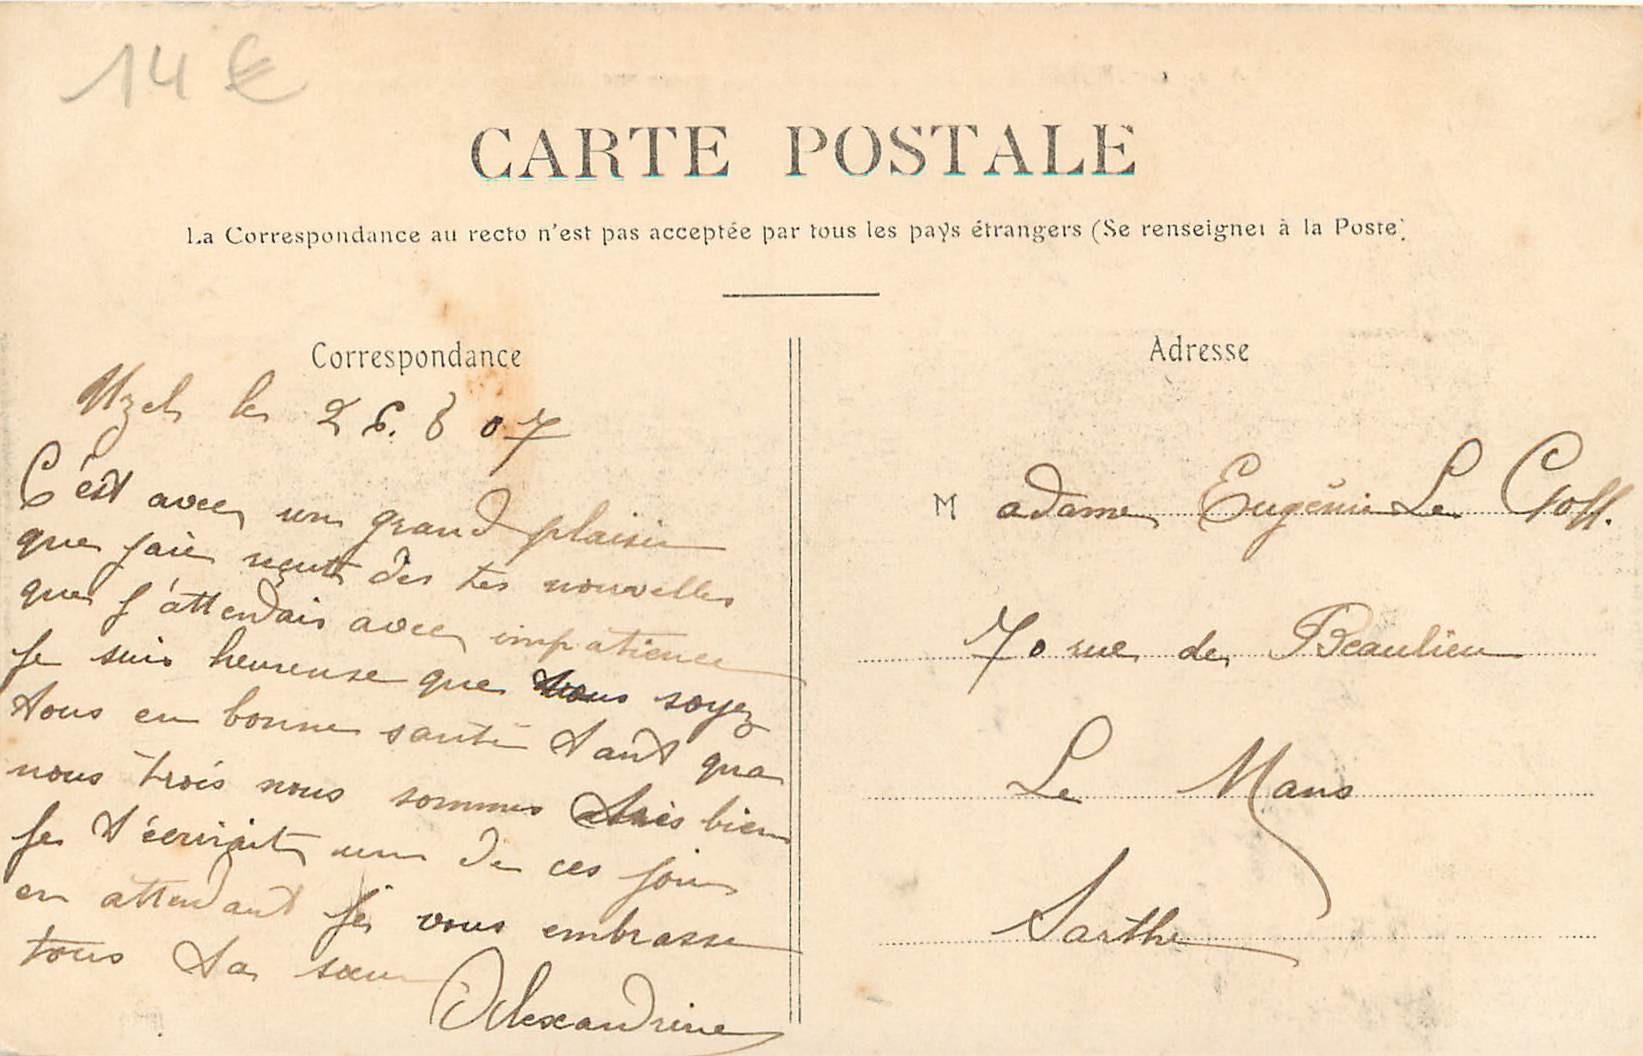 14 €
CARTE POSTALE
La Correspondance au recto n'est pas acceptée par tous les pays étrangers (Se renseigner à la Poste)
Correspondance
Uzel le 26. 8 07
C'est avec un grand plaisir
que jaie reçut des tes nouvelles
que j'attendais avec impatience
je suis heureuse que vous soyez
tous en bonne santé tant qua
nous trois nous sommes très bien
je t'écrirait un de ces jour
en attendant je vous embrasse
tous ta sœur
Alexandrine
Adresse
M adame Eugénie Le Goff.
70 rue de Beaulieu
Le Mans
Sarthe